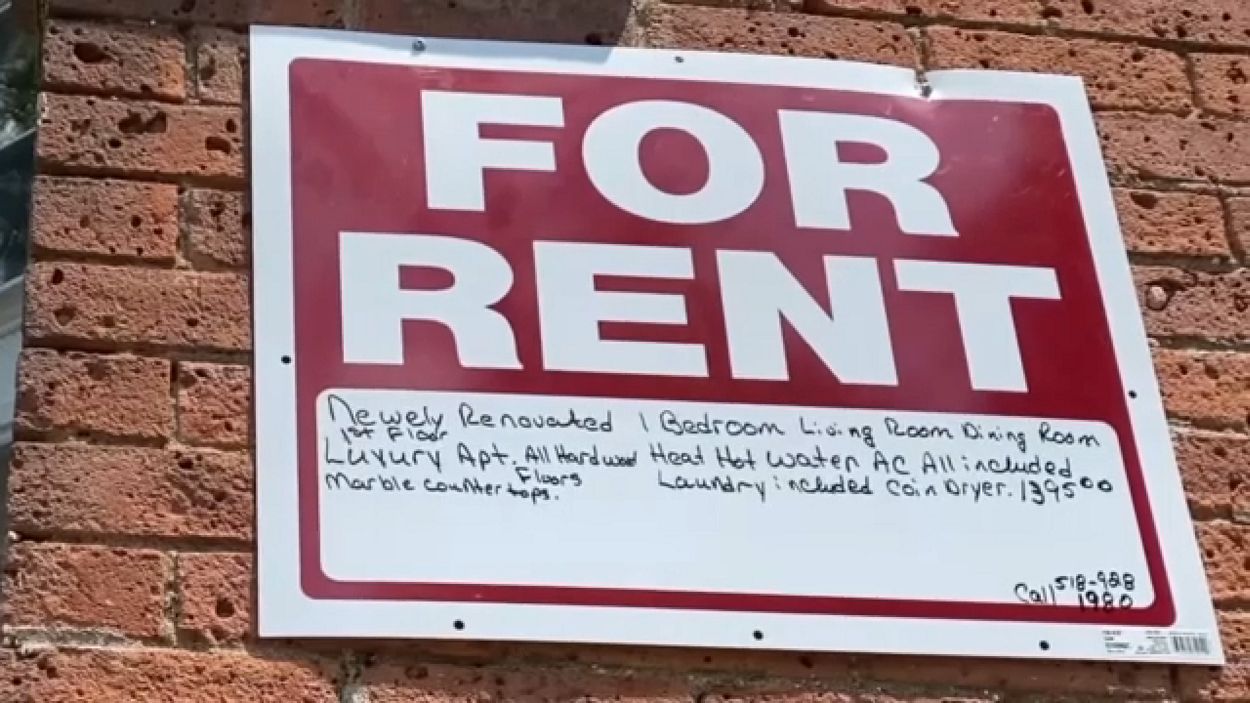 FOR
RENT
Newely Renovated 1 Bedroom Living Room Dining Room
1st Floor
Luxury Apt. All Hardwood Heat Hot Water AC All included
Floors
Marble countertops. Laundry included Coin Dryer. 1395⁰⁰
Call 518-928
1980